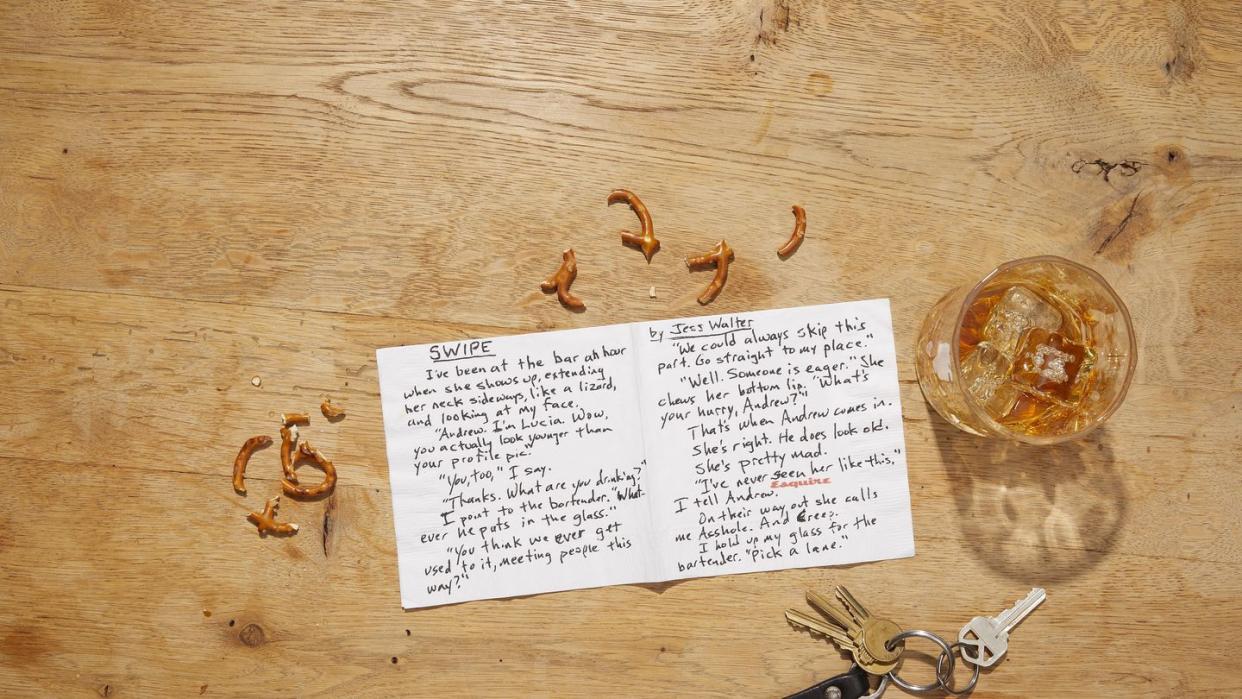 SWIPE
I've been at the bar an hour
when she shows up, extending
her neck sideways, like a lizard,
and looking at my face.
"Andrew. I'm Lucia. Wow,
you actually look younger than
your profile pic."
"You, too," I say.
"Thanks. What are you drinking?"
I point to the bartender. "What-
ever he puts in the glass."
"You think we ever get
used to it, meeting people this
way?"
by Jess Walter
"We could always skip this
part. Go straight to my place."
"Well. Someone is eager." She
chews her bottom lip. "What's
your hurry, Andrew?"
That's when Andrew comes in.
She's right. He does look old.
She's pretty mad.
"I've never seen her like this,"
Esquire
I tell Andrew.
On their way out she calls
me Asshole. And Creep.
I hold up my glass for the
bartender. "Pick a lane."